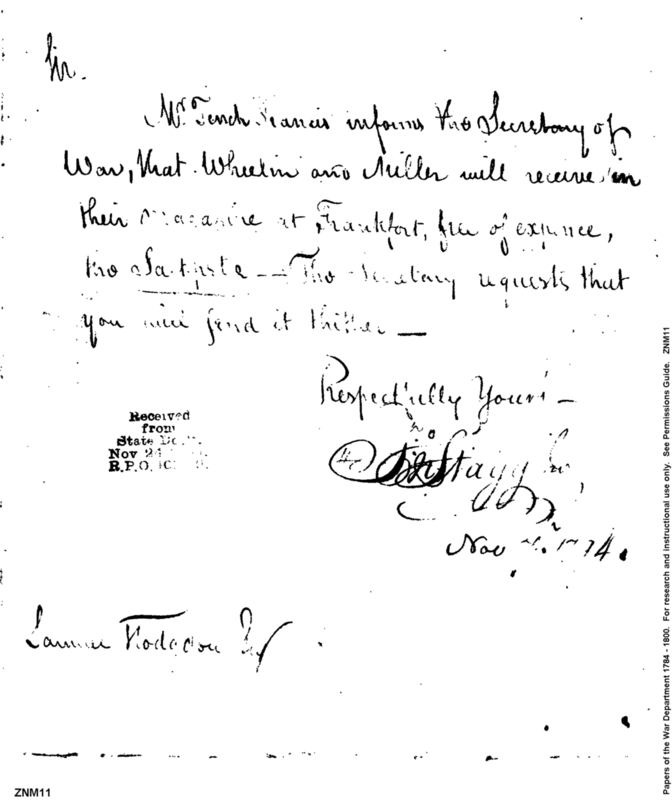 Sir.
Mr. Tench Francis informs the Secretary of
War, that Wheelin and Miller will receive in
their Magazine at Frankfort, free of expence,
the Saltpetre — The Secretary requests that
you will send it thither —
Respectfully Yours —
Jn Stagg Jnr
Nov 1794.
Received
from
State
Nov 24
R.P.O.
Samuel Hodgdon Esq
ZNM11
Papers of the War Department 1784 - 1800. For research and instructional use only. See Permissions Guide. ZNM11